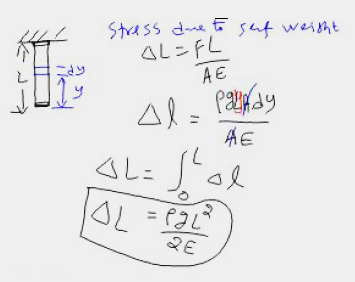 Stress due to self weight
L
dy
y
ΔL = FL / AE
Δl = ρgyA dy / AE
ΔL = ∫₀ᴸ Δl
ΔL = ρgL² / 2E